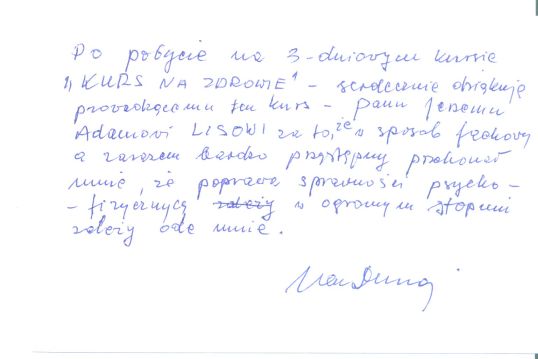 Po pobycie na 3-dniowym kursie
"KURS NA ZDROWIE" - serdecznie dziękuję
prowadzącemu ten kurs - Panu Jerzemu
Adamowi LISOWI za to, że w sposób fachowy
a zarazem bardzo przystępny przekonał
mnie, że poprawa sprawności psycho-
-fizycznej zależy w ogromnym stopniu
zależy ode mnie.